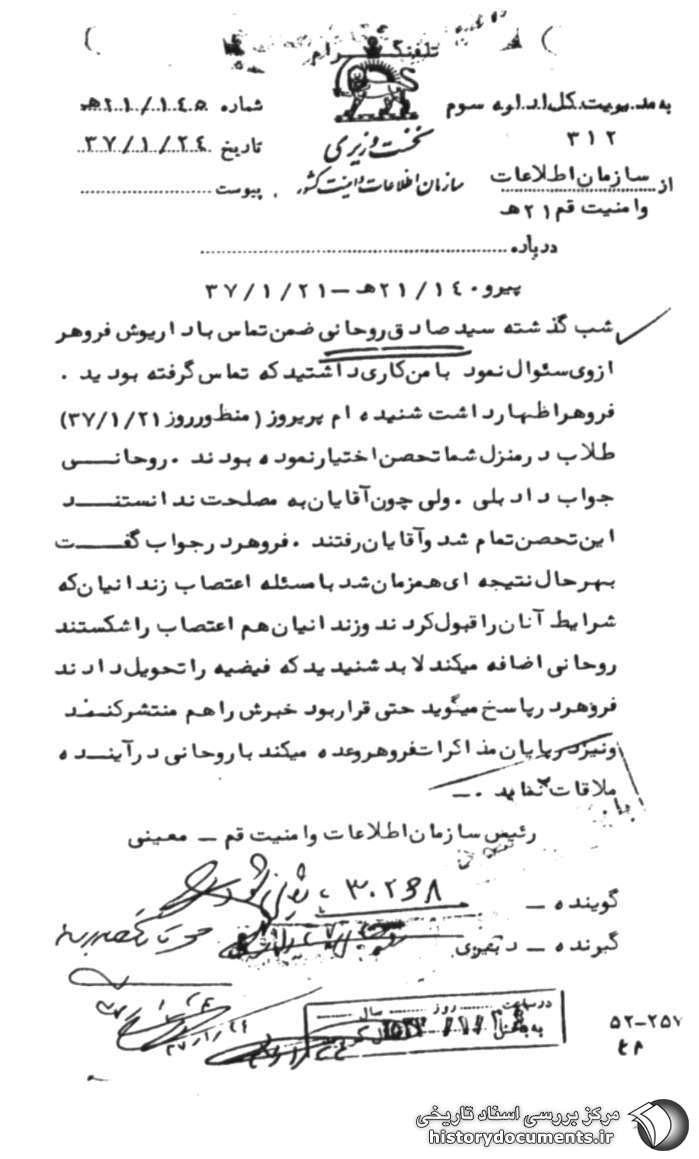 تلفنگرام
به مدیریت کل اداره سوم
۳۱۲
از سازمان اطلاعات
وامنیت قم ۲۱هـ
نخست وزیری
سازمان اطلاعات و امنیت کشور
شماره ۲۱/۱۴۵هـ
تاریخ ۳۷/۱/۲۴
پیوست
درباره
پیرو ۲۱/۱۴۰هـ – ۳۷/۱/۲۱
شب گذشته سید صادق روحانی ضمن تماس با داریوش فروهر
ازوی سئوال نمود با من کاری داشتید که تماس گرفته بودید .
فروهر اظهار داشت شنیده ام پریروز (منظور روز ۳۷/۱/۲۱)
طلاب در منزل شما تحصن اختیار نموده بودند . روحانی
جواب داد بلی . ولی چون آقایان به مصلحت ندانستند
این تحصن تمام شد و آقایان رفتند . فروهر در جواب گفت
بهر حال نتیجه ای همزمان شد با مسئله اعتصاب زندانیان که
شرایط آنان را قبول کردند و زندانیان هم اعتصاب را شکستند
روحانی اضافه میکند لابد شنیدید که فیضیه را تحویل دادند
فروهر در پاسخ میگوید حتی قرار بود خبرش را هم منتشر کنند
و نیز در پایان مذاکرات فروهر وعده میکند با روحانی در آینده
ملاقات نماید .–
رئیس سازمان اطلاعات وامنیت قم – معینی
گوینده –
گیرنده – دبیری
در ساعت روز سال
۵۲-۲۵۷
م ع
مرکز بررسی اسناد تاریخی
historydocuments.ir